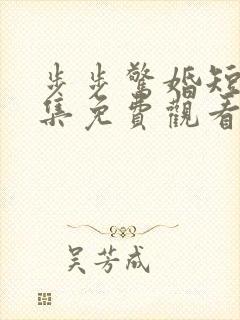 步步驚婚短
集免費觀看
吳芳成